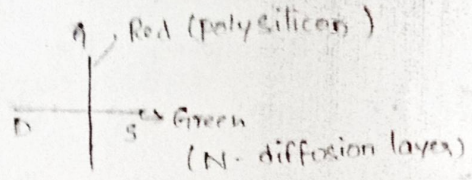 G Red (polysilicon)
D S Green
(N- diffusion layer)